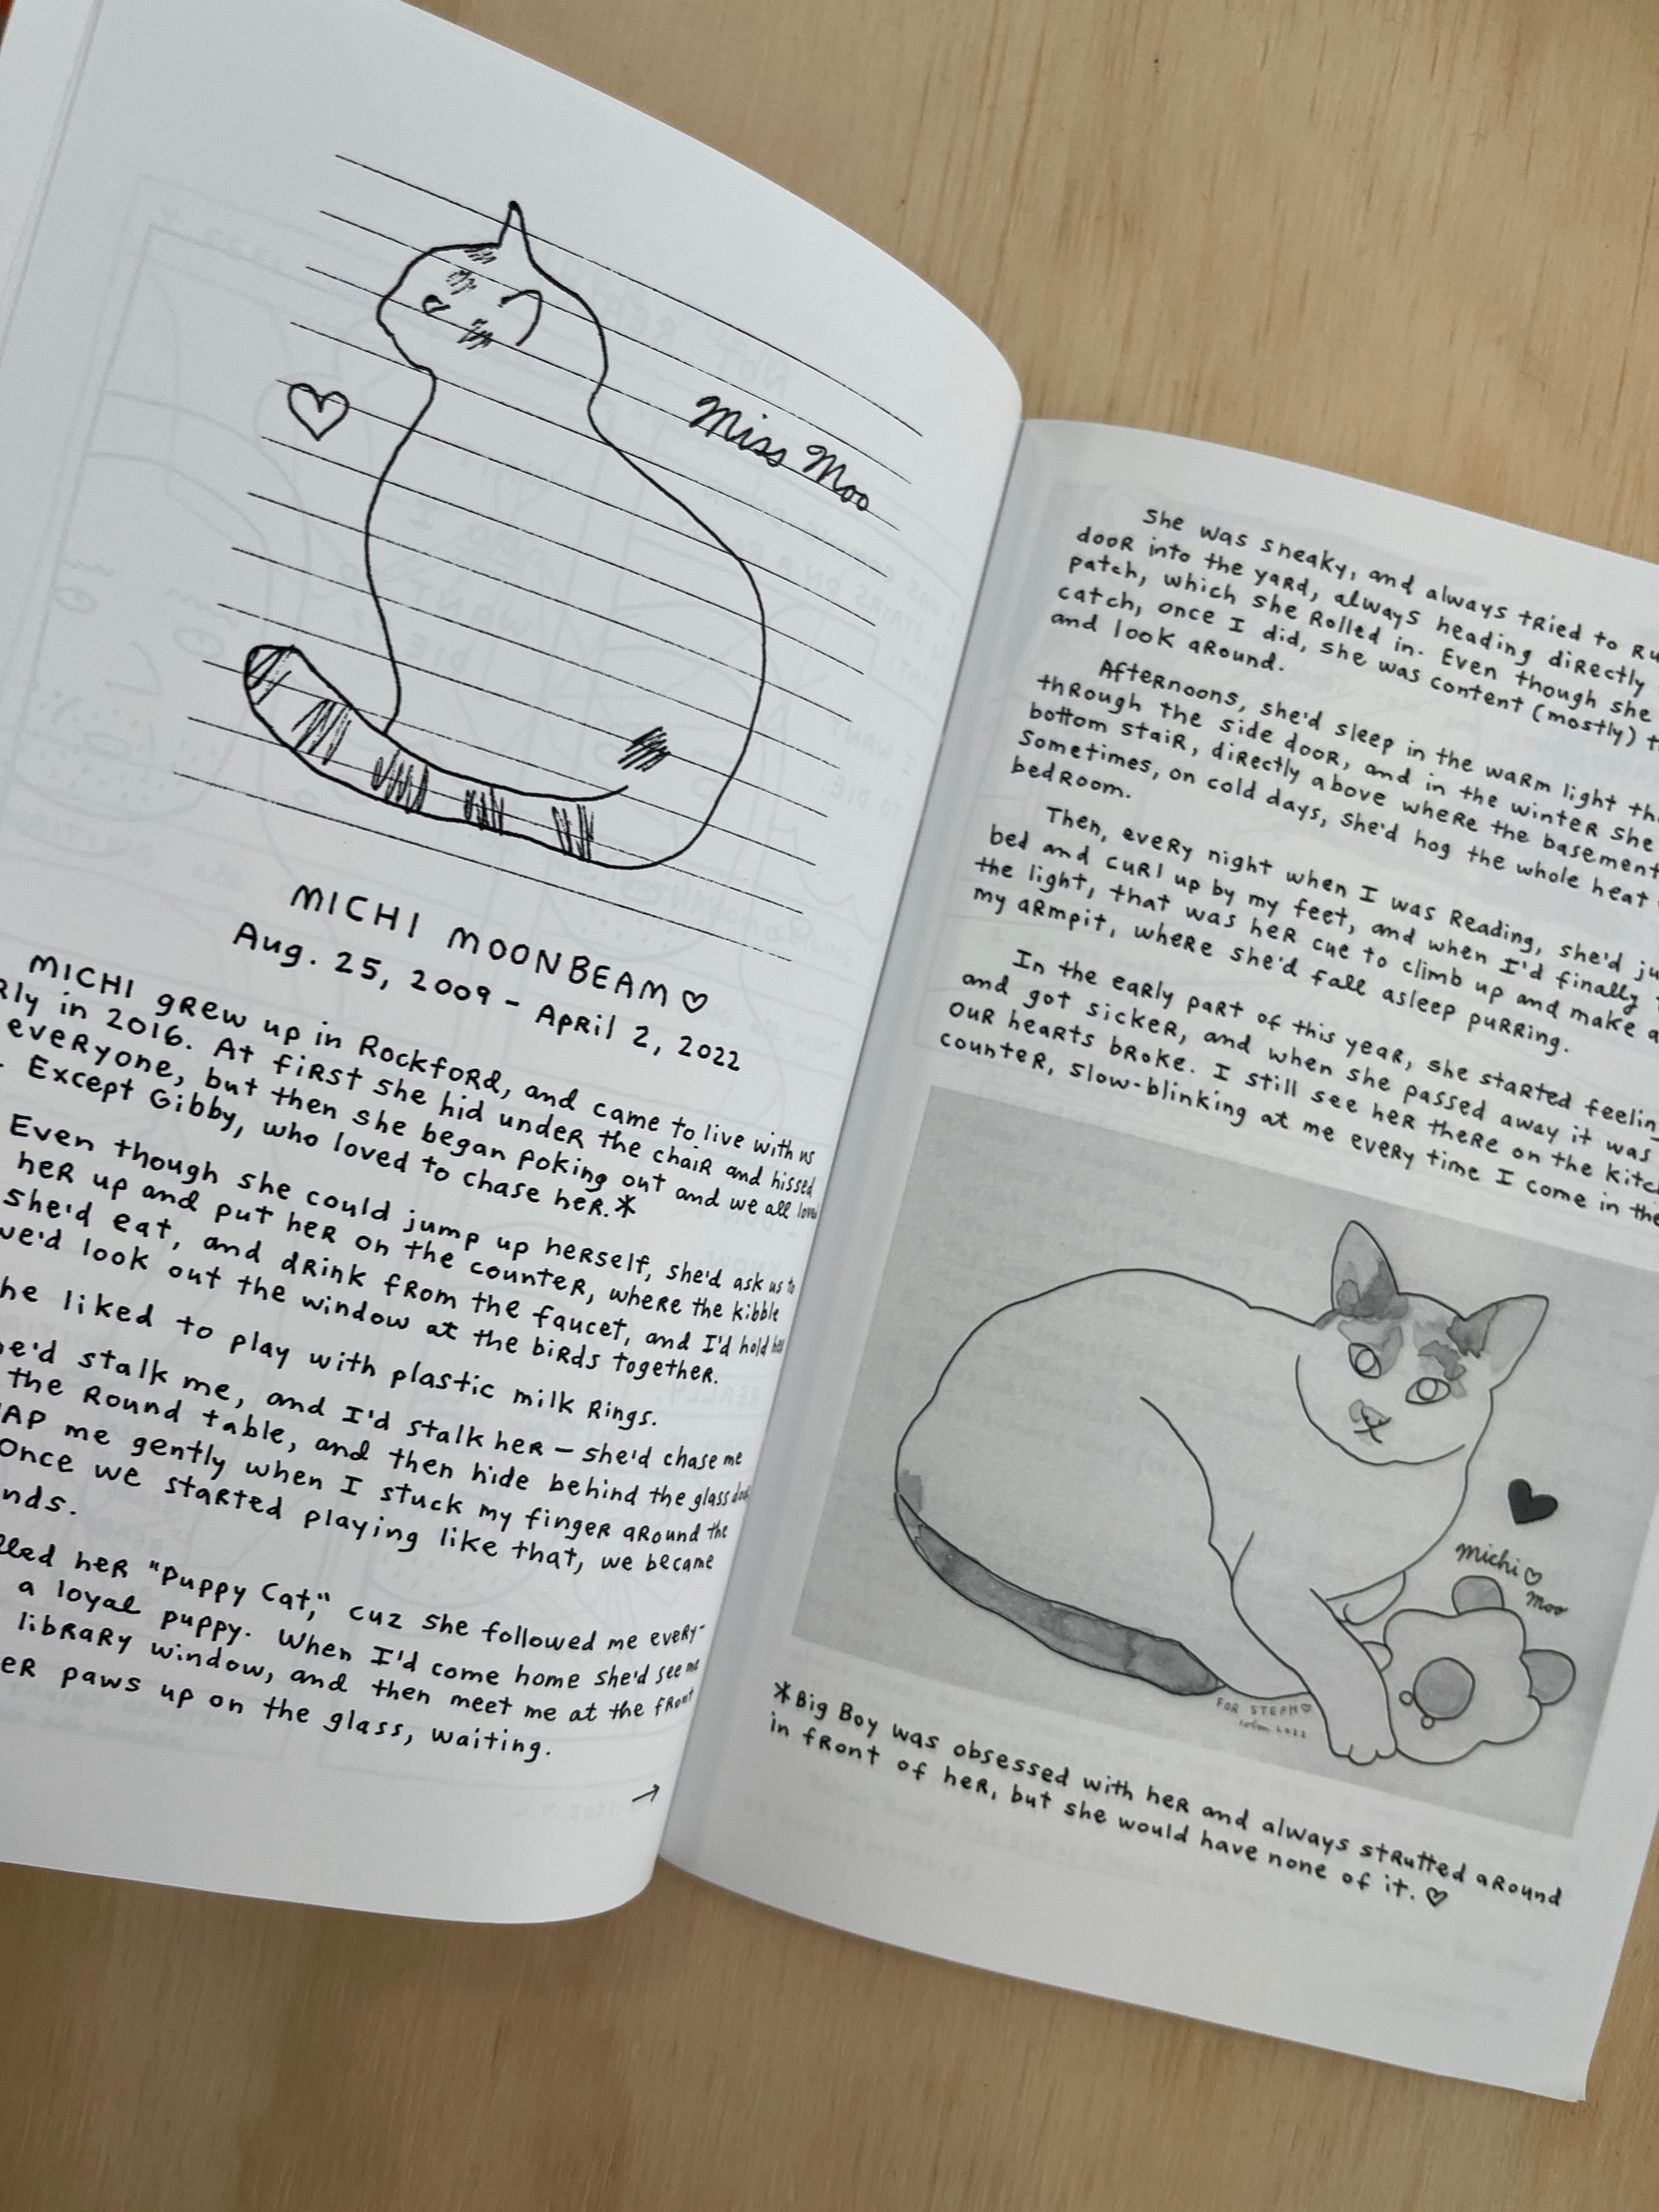 Miss Moo
MICHI MOONBEAM ♡
Aug. 25, 2009 - April 2, 2022
MICHI grew up in Rockford, and came to live with us
rly in 2016. At first she hid under the chair and hissed
everyone, but then she began poking out and we all love
. Except Gibby, who loved to chase her.*
Even though she could jump up herself, she'd ask us to
her up and put her on the counter, where the kibble
she'd eat, and drink from the faucet, and I'd hold her
we'd look out the window at the birds together.
he liked to play with plastic milk rings.
he'd stalk me, and I'd stalk her — she'd chase me
the round table, and then hide behind the glass door
AP me gently when I stuck my finger around the
Once we started playing like that, we became
nds.
lled her "Puppy Cat," cuz she followed me every-
a loyal puppy. When I'd come home she'd see me
library window, and then meet me at the front
er paws up on the glass, waiting.
She was sneaky, and always tried to ru
door into the yard, always heading directly
patch, which she rolled in. Even though she
catch, once I did, she was content (mostly) t
and look around.
Afternoons, she'd sleep in the warm light th
through the side door, and in the winter she
bottom stair, directly above where the basement
Sometimes, on cold days, she'd hog the whole heat
bedroom.
Then, every night when I was reading, she'd ju
bed and curl up by my feet, and when I'd finally t
the light, that was her cue to climb up and make a
my armpit, where she'd fall asleep purring.
In the early part of this year, she started feeling
and got sicker, and when she passed away it was
our hearts broke. I still see her there on the kitch
counter, slow-blinking at me every time I come in the
Michi ♡
Moo
FOR STEPH ♡
*Big Boy was obsessed with her and always strutted around
in front of her, but she would have none of it. ♡